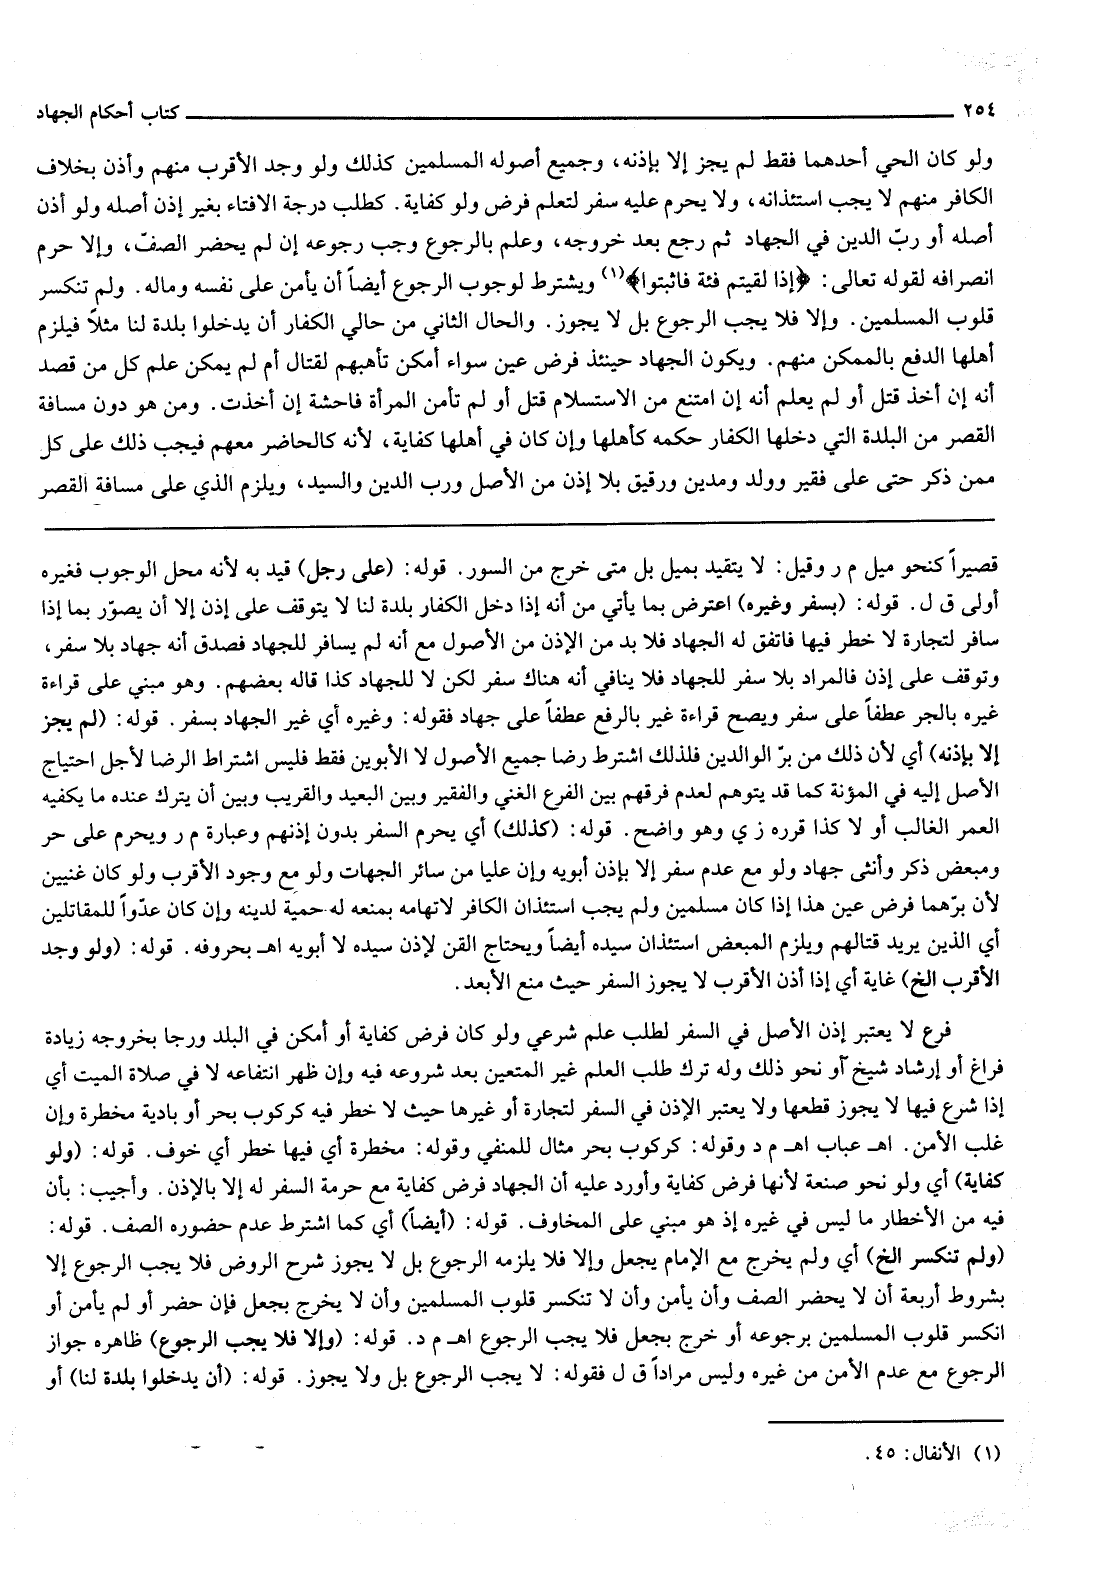 ٢٥٤ كتاب أحكام الجهاد
ولو كان الحي أحدهما فقط لم يجز إلا بإذنه، وجميع أصوله المسلمين كذلك ولو وجد الأقرب منهم وأذن بخلاف
الكافر منهم لا يجب استئذانه، ولا يحرم عليه سفر لتعلم فرض ولو كفاية. كطلب درجة الافتاء بغير إذن أصله ولو أذن
أصله أو ربّ الدين في الجهاد ثم رجع بعد خروجه، وعلم بالرجوع وجب رجوعه إن لم يحضر الصفّ، وإلا حرم
انصرافه لقوله تعالى: ﴿إذا لقيتم فئة فاثبتوا﴾(١) ويشترط لوجوب الرجوع أيضاً أن يأمن على نفسه وماله. ولم تنكسر
قلوب المسلمين. وإلا فلا يجب الرجوع بل لا يجوز. والحال الثاني من حالي الكفار أن يدخلوا بلدة لنا مثلاً فيلزم
أهلها الدفع بالممكن منهم. ويكون الجهاد حينئذ فرض عين سواء أمكن تأهبهم لقتال أم لم يمكن علم كل من قصد
أنه إن أخذ قتل أو لم يعلم أنه إن امتنع من الاستسلام قتل أو لم تأمن المرأة فاحشة إن أخذت. ومن هو دون مسافة
القصر من البلدة التي دخلها الكفار حكمه كأهلها وإن كان في أهلها كفاية، لأنه كالحاضر معهم فيجب ذلك على كل
ممن ذكر حتى على فقير وولد ومدين ورقيق بلا إذن من الأصل ورب الدين والسيد، ويلزم الذي على مسافة القصر
قصيراً كنحو ميل م ر وقيل: لا يتقيد بميل بل متى خرج من السور. قوله: (على رجل) قيد به لأنه محل الوجوب فغيره
أولى ق ل. قوله: (بسفر وغيره) اعترض بما يأتي من أنه إذا دخل الكفار بلدة لنا لا يتوقف على إذن إلا أن يصوّر بما إذا
سافر لتجارة لا خطر فيها فاتفق له الجهاد فلا بد من الإذن من الأصول مع أنه لم يسافر للجهاد فصدق أنه جهاد بلا سفر،
وتوقف على إذن فالمراد بلا سفر للجهاد فلا ينافي أنه هناك سفر لكن لا للجهاد كذا قاله بعضهم. وهو مبني على قراءة
غيره بالجر عطفاً على سفر ويصح قراءة غير بالرفع عطفاً على جهاد فقوله: وغيره أي غير الجهاد بسفر. قوله: (لم يجز
إلا بإذنه) أي لأن ذلك من برّ الوالدين فلذلك اشترط رضا جميع الأصول لا الأبوين فقط فليس اشتراط الرضا لأجل احتياج
الأصل إليه في المؤنة كما قد يتوهم لعدم فرقهم بين الفرع الغني والفقير وبين البعيد والقريب وبين أن يترك عنده ما يكفيه
العمر الغالب أو لا كذا قرره ز ي وهو واضح. قوله: (كذلك) أي يحرم السفر بدون إذنهم وعبارة م ر ويحرم على حر
ومبعض ذكر وأنثى جهاد ولو مع عدم سفر إلا بإذن أبويه وإن عليا من سائر الجهات ولو مع وجود الأقرب ولو كان غنيين
لأن برّهما فرض عين هذا إذا كان مسلمين ولم يجب استئذان الكافر لاتهامه بمنعه له حمية لدينه وإن كان عدّواً للمقاتلين
أي الذين يريد قتالهم ويلزم المبعض استئذان سيده أيضاً ويحتاج القن لإذن سيده لا أبويه اهـ بحروفه. قوله: (ولو وجد
الأقرب الخ) غاية أي إذا أذن الأقرب لا يجوز السفر حيث منع الأبعد.
فرع لا يعتبر إذن الأصل في السفر لطلب علم شرعي ولو كان فرض كفاية أو أمكن في البلد ورجا بخروجه زيادة
فراغ أو إرشاد شيخ أو نحو ذلك وله ترك طلب العلم غير المتعين بعد شروعه فيه وإن ظهر انتفاعه لا في صلاة الميت أي
إذا شرع فيها لا يجوز قطعها ولا يعتبر الإذن في السفر لتجارة أو غيرها حيث لا خطر فيه كركوب بحر أو بادية مخطرة وإن
غلب الأمن. اهـ عباب اهـ م د وقوله: كركوب بحر مثال للمنفي وقوله: مخطرة أي فيها خطر أي خوف. قوله: (ولو
كفاية) أي ولو نحو صنعة لأنها فرض كفاية وأورد عليه أن الجهاد فرض كفاية مع حرمة السفر له إلا بالإذن. وأجيب: بأن
فيه من الأخطار ما ليس في غيره إذ هو مبني على المخاوف. قوله: (أيضاً) أي كما اشترط عدم حضوره الصف. قوله:
(ولم تنكسر الخ) أي ولم يخرج مع الإمام يجعل وإلا فلا يلزمه الرجوع بل لا يجوز شرح الروض فلا يجب الرجوع إلا
بشروط أربعة أن لا يحضر الصف وأن يأمن وأن لا تنكسر قلوب المسلمين وأن لا يخرج بجعل فإن حضر أو لم يأمن أو
انكسر قلوب المسلمين برجوعه أو خرج بجعل فلا يجب الرجوع اهـ م د. قوله: (وإلا فلا يجب الرجوع) ظاهره جواز
الرجوع مع عدم الأمن من غيره وليس مراداً ق ل فقوله: لا يجب الرجوع بل ولا يجوز. قوله: (أن يدخلوا بلدة لنا) أو
(١) الأنفال: ٤٥.